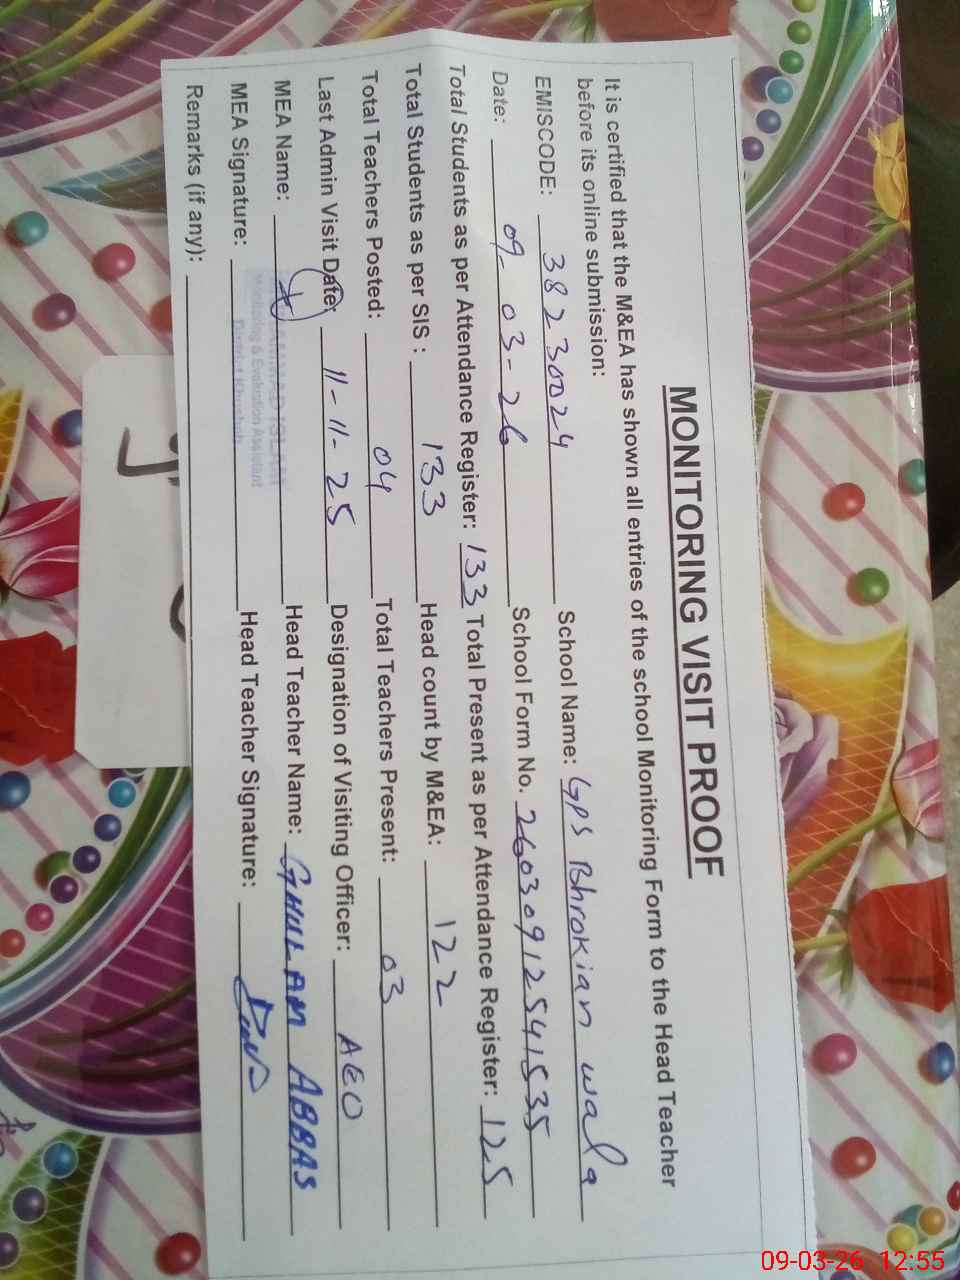 MONITORING VISIT PROOF
It is certified that the M&EA has shown all entries of the school Monitoring Form to the Head Teacher
before its online submission:
EMISCODE: 38230024 School Name: GPS Bhrokian wala
Date: 09-03-26 School Form No. 26030912541535
Total Students as per Attendance Register: 133 Total Present as per Attendance Register: 125
Total Students as per SIS : 133 Head count by M&EA: 122
Total Teachers Posted: 04 Total Teachers Present: 03
Last Admin Visit Date: 11-11-25 Designation of Visiting Officer: AEO
MEA Name: Head Teacher Name: GHULAM ABBAS
MEA Signature: Head Teacher Signature:
Monitoring & Evaluation Assistant
District Khushab
Remarks (if any):
09-03-26 12:55